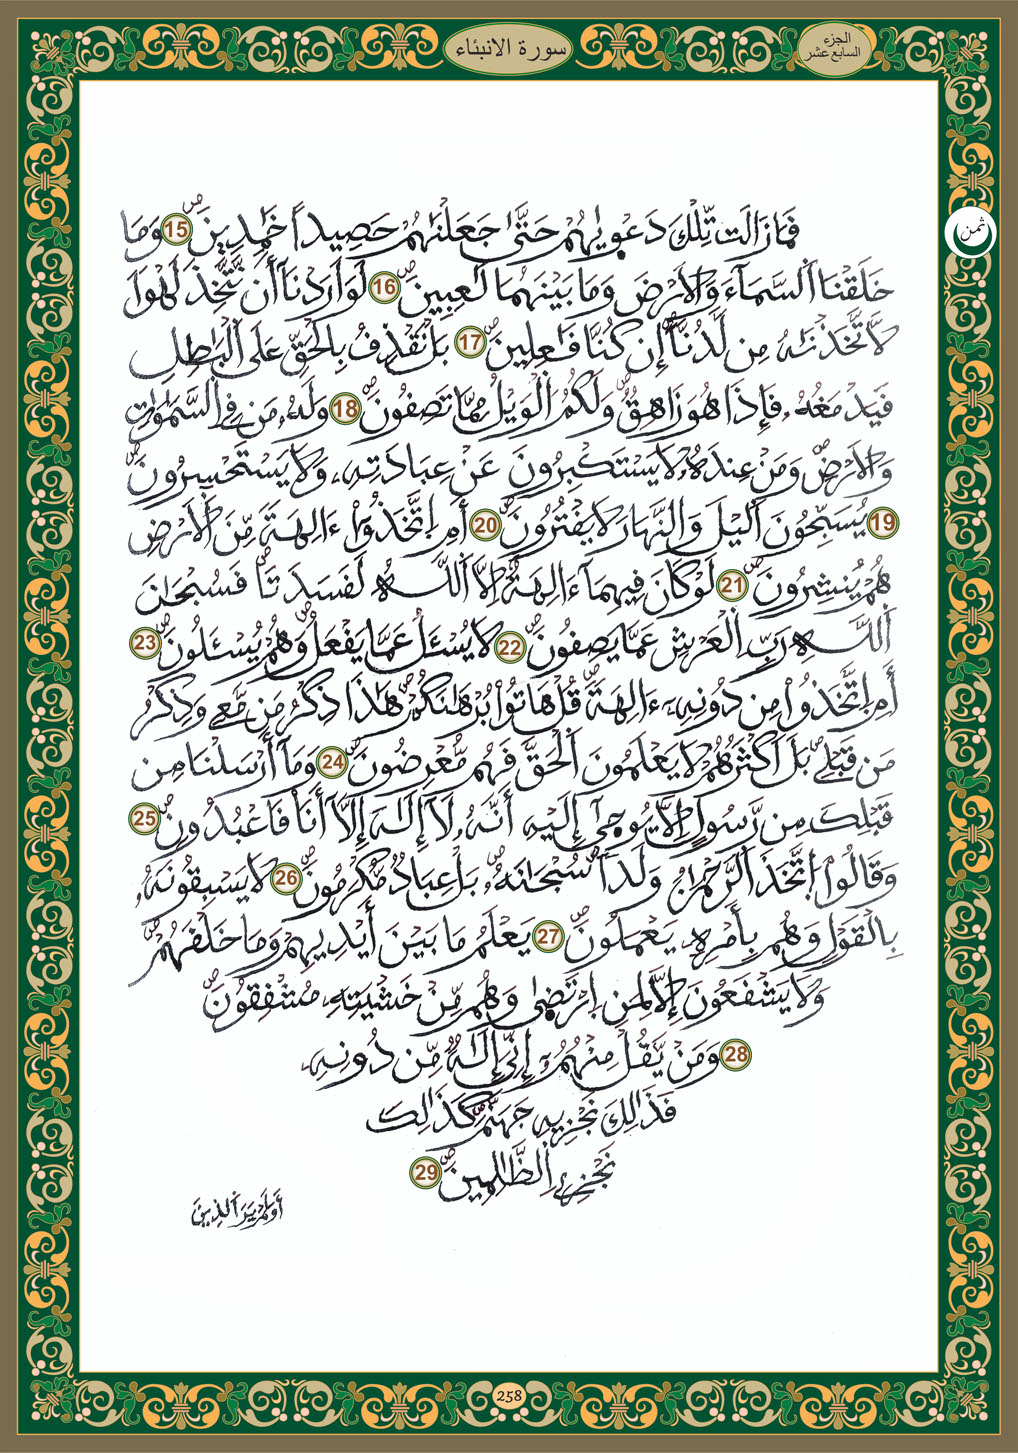 سورة الانبئاء
الجزء
السابع عشر
ثمن
فَمَا زَالَت تِّلْكَ دَعْوٜيٰهُمْ حَتَّىٰ جَعَلْنَٰهُمْ حَصِيداً خَٰمِدِينَۖ 15 وَمَا
خَلَقْنَا اَ۬لسَّمَآءَ وَالَارْضَ وَمَا بَيْنَهُمَا لَٰعِبِينَۖ 16 لَوَ اَرَدْنَآ أَن نَّتَّخِذَ لَهْواٗ
لَّاتَّخَذْنَٰهُ مِن لَّدُنَّآ إِن كُنَّا فَٰعِلِينَۖ 17 بَلْ نَقْذِفُ بِالْحَقِّ عَلَى اَ۬لْبَٰطِلِ
فَيَدْمَغُهُۥ فَإِذَا هُوَ زَاهِقٞۖ وَلَكُمُ اَ۬لْوَيْلُ مِمَّا تَصِفُونَۖ 18 وَلَهُۥ مَن فِے اِ۬لسَّمَٰوَٰتِ
وَالَارْضِۖ وَمَنْ عِندَهُۥ لَا يَسْتَكْبِرُونَ عَنْ عِبَادَتِهِۦ وَلَا يَسْتَحْسِرُونَۖ
19 يُسَبِّحُونَ اَ۬ليْلَ وَالنَّهَارَ لَا يَفْتُرُونَۖ 20 أَمِ اِ۪تَّخَذُوٓاْ ءَالِهَةٗ مِّنَ اَ۬لَارْضِ
هُمْ يُنشِرُونَۖ 21 لَوْ كَانَ فِيهِمَآ ءَالِهَةٌ اِلَّا اَ۬للَّهُ لَفَسَدَتَاۖ فَسُبْحَٰنَ
اَ۬للَّهِ رَبِّ اِ۬لْعَرْشِ عَمَّا يَصِفُونَۖ 22 لَا يُسْـَٔلُ عَمَّا يَفْعَلُ وَهُمْ يُسْـَٔلُونَۖ 23
أَمِ اِ۪تَّخَذُواْ مِن دُونِهِۦٓ ءَالِهَةٗۖ قُلْ هَاتُواْ بُرْهَٰنَكُمْۖ هَٰذَا ذِكْرُ مَن مَّعِے وَذِكْرُ
مَن قَبْلِےۖ بَلَ اَكْثَرُهُمْ لَا يَعْلَمُونَ اَ۬لْحَقَّ فَهُم مُّعْرِضُونَۖ 24 وَمَآ أَرْسَلْنَا مِن
قَبْلِكَ مِن رَّسُولٍ اِلَّا يُوحَىٰٓ إِلَيْهِ أَنَّهُۥ لَآ إِلَٰهَ إِلَّآ أَنَا فَاعْبُدُونِۖ 25
وَقَالُواْ اُ۪تَّخَذَ اَ۬لرَّحْمَٰنُ وَلَداٗۖ سُبْحَٰنَهُۥۖ بَلْ عِبَادٞ مُّكْرَمُونَۖ 26 لَا يَسْبِقُونَهُۥ
بِالْقَوْلِ وَهُم بِأَمْرِهِۦ يَعْمَلُونَۖ 27 يَعْلَمُ مَا بَيْنَ أَيْدِيهِمْ وَمَا خَلْفَهُمْۖ
وَلَا يَشْفَعُونَ إِلَّا لِمَنِ اِ۪رْتَضَىٰ وَهُم مِّنْ خَشْيَتِهِۦ مُشْفِقُونَۖ
28 وَمَنْ يَّقُلْ مِنْهُمُۥٓ إِنِّيَ إِلَٰهٞ مِّن دُونِهِۦ
فَذَٰلِكَ نَجْزِيهِ جَهَنَّمَۖ كَذَٰلِكَ
نَجْزِے اِ۬لظَّٰلِمِينَۖ 29
أَوَلَمْ يَرَ اَ۬لذِينَ
258